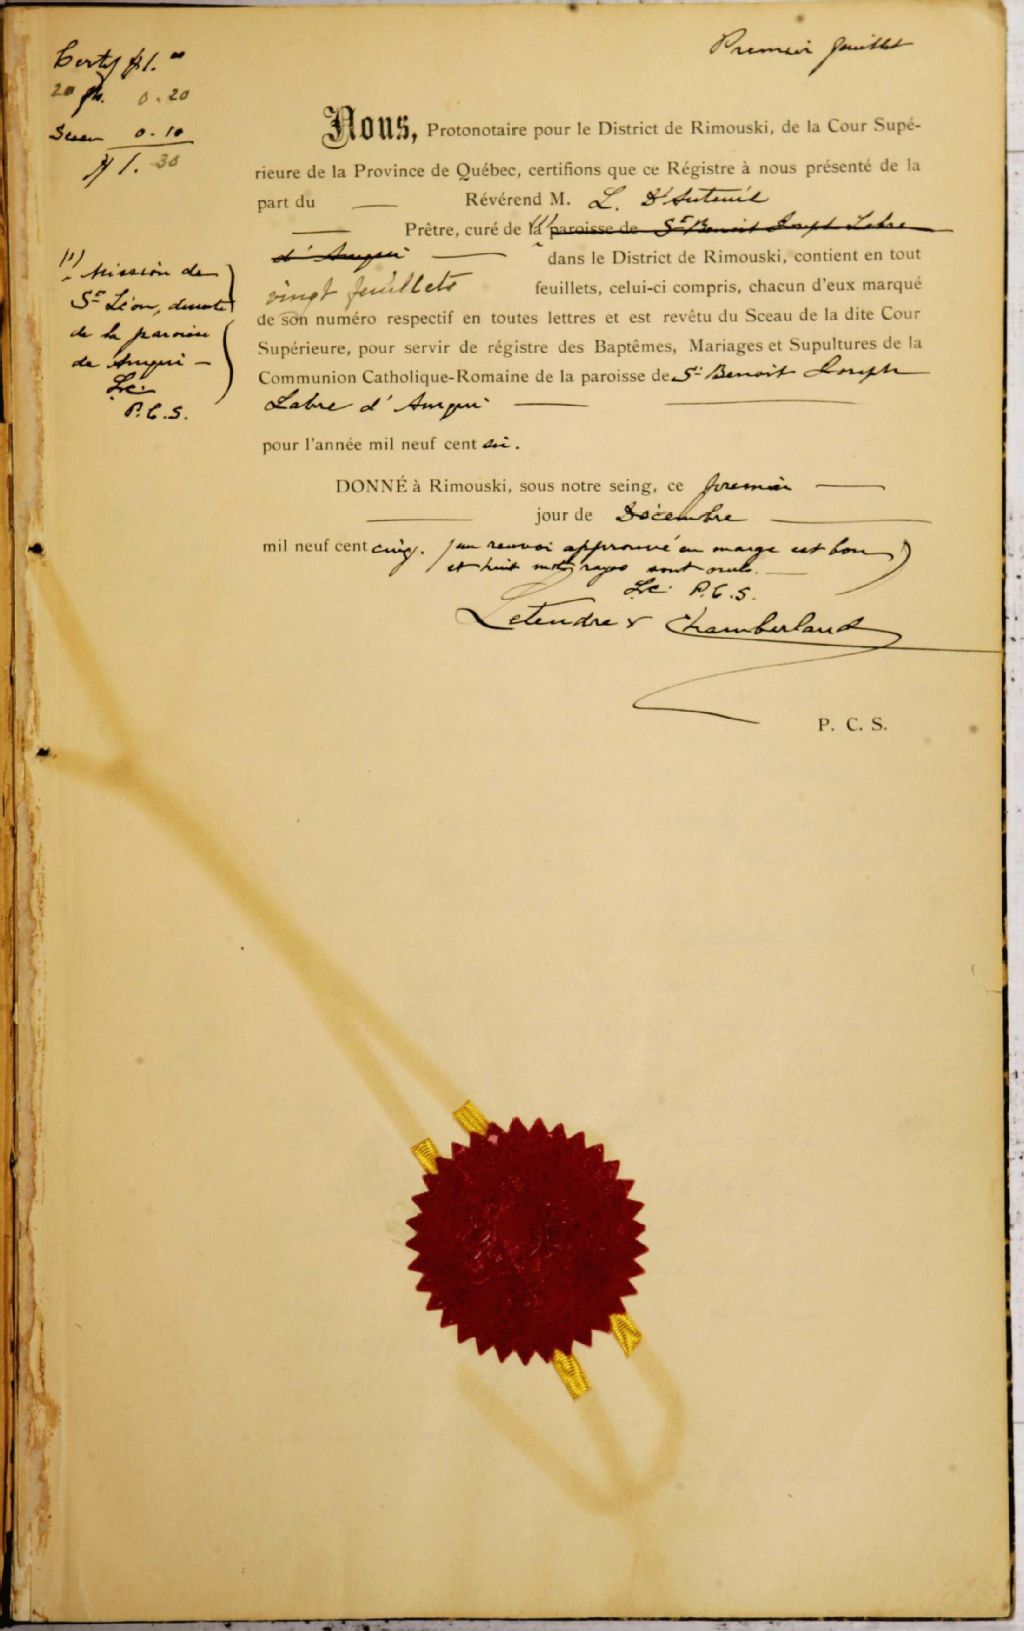 Premier feuillet
Certif $1.00
20 fts. 0.20
Sceau 0.10
$1.30
Nous, Protonotaire pour le District de Rimouski, de la Cour Supé-
rieure de la Province de Québec, certifions que ce Régistre à nous présenté de la
part du — Révérend M. L. D'Auteuil
— Prêtre, curé de la (1) paroisse de St Benoit Joseph Labre
d'Amqui — dans le District de Rimouski, contient en tout
vingt feuillets feuillets, celui-ci compris, chacun d'eux marqué
de son numéro respectif en toutes lettres et est revêtu du Sceau de la dite Cour
Supérieure, pour servir de régistre des Baptêmes, Mariages et Supultures de la
Communion Catholique-Romaine de la paroisse de St Benoit Joseph
Labre d'Amqui — —
pour l'année mil neuf cent six.
(1) Mission de
St Léon,
de la paroisse
de Amqui —
L.C.
P.C.S.
DONNÉ à Rimouski, sous notre seing, ce premier —
— jour de Décembre —
mil neuf cent cinq. (un renvoi approuvé en marge est bon)
et huit mots rayés sont nuls. —
L.C. P.C.S.
Letendre & Chamberland
P. C. S.